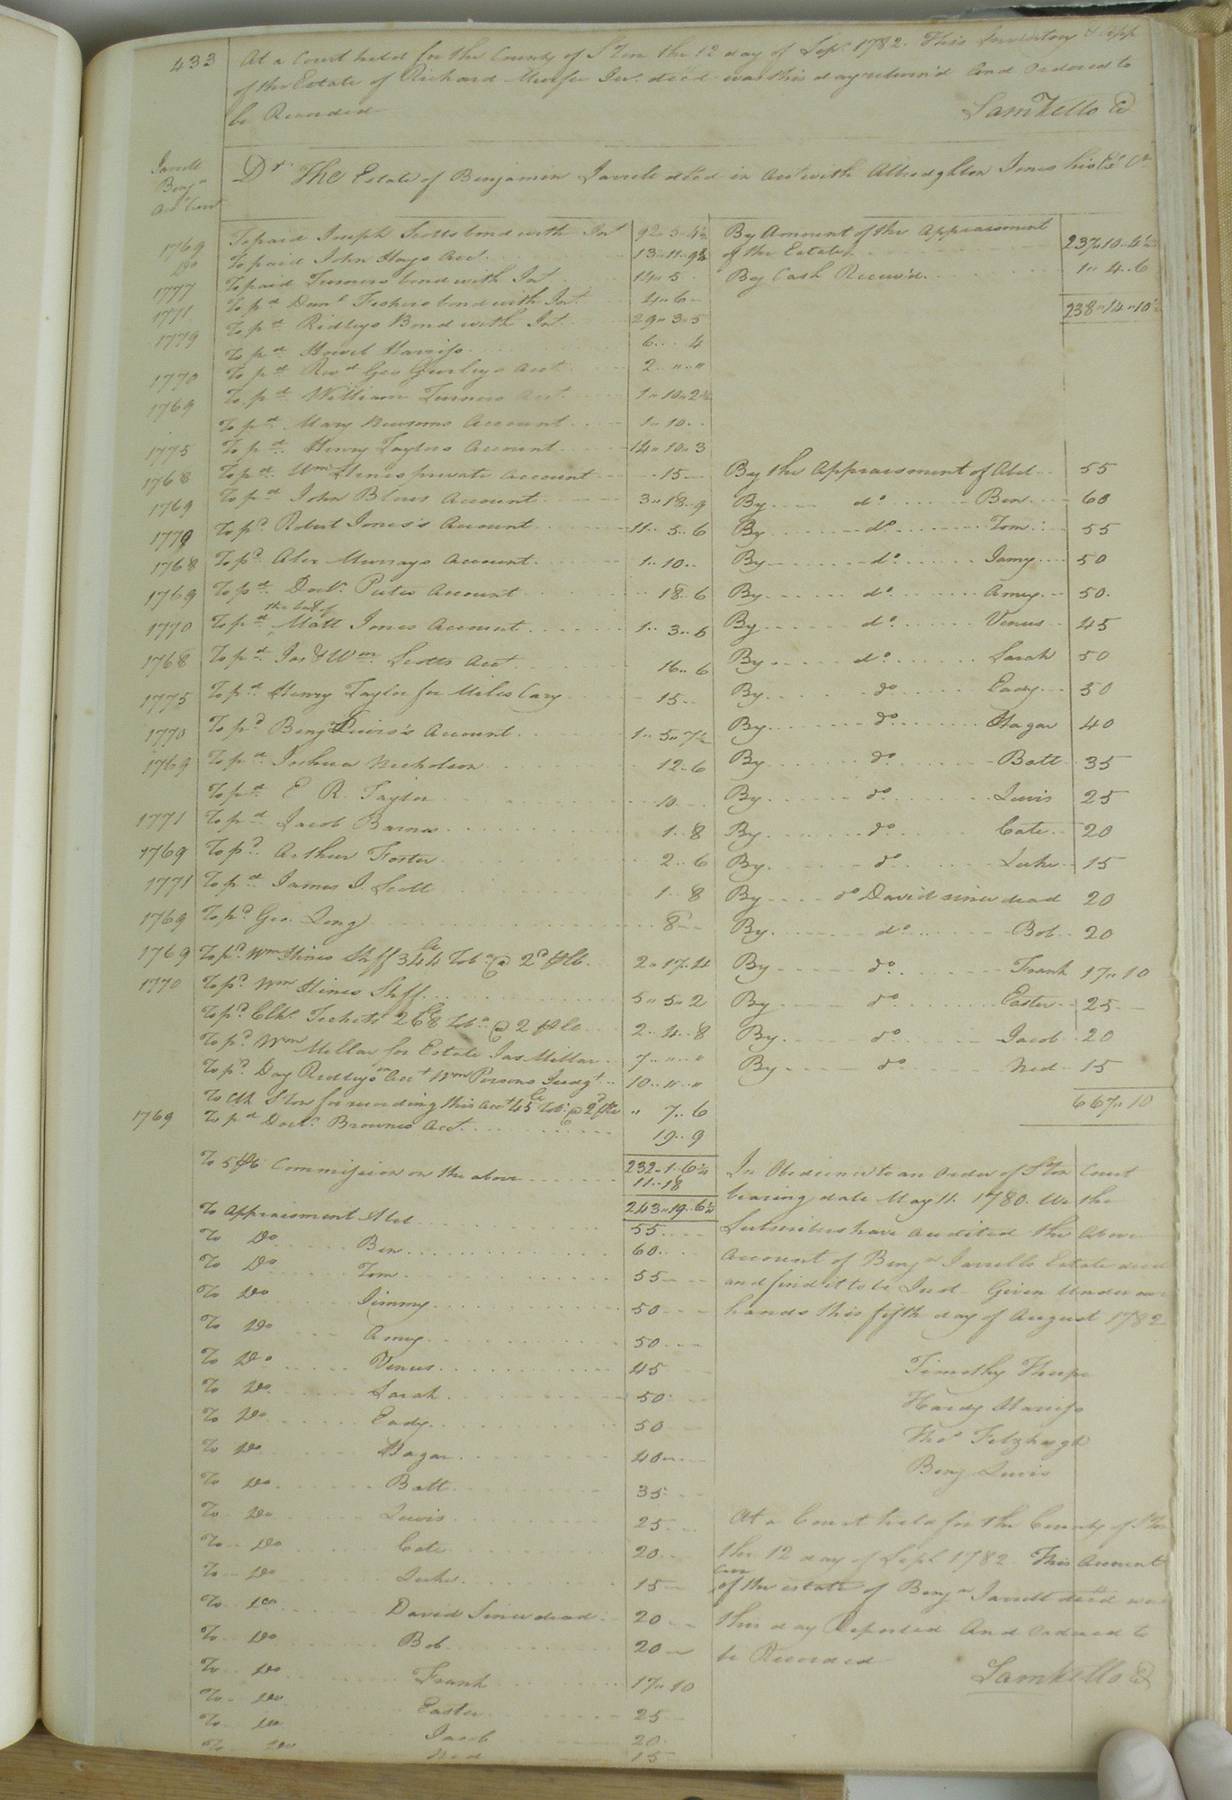 433
At a Court held for the County of S'ton the 12 day of Sept. 1782. This Inventory & App
of the Estate of Richard Junr. decd was this day return'd and Ordered to
be Recorded
Sam Kello
Jarrell
Benja
Acct Curt
Dr. The Estate of Benjamin Jarrell decd in Acct with Albridghton Jones his Exr Cr
1769 To paid Joseph Scotts bond with Int 92 5 4½
Do To paid John Hays Acct 13 11 9½
1777 To paid Turners bond with Int 14 5
1771 To pd Danl Fishers bond with Int 4 6
1779 To pd Ridleys Bond with Int 29 3 5
To pd Howel Harriss 6 4
1770 To pd Revd Geo Gurleys Acct 2 " "
1769 To pd William Turners Acct 1 10 2½
To pd Mary Newsoms Account 1 10
1775 To pd Henry Taylors Account 14 10 3
1768 To pd Wm Hines private Account 15
1769 To pd John Blows Account 3 18 9
1779 To pd Robert Jones's Account 11 5 6
1768 To pd Alex Murrays Account 1 10
1769 To pd Doctr. Petes Account 18 6
1770 To pd Matt Jones Account 1 3 5
1768 To pd Jas & Wm Scotts Acct 16 6
1775 To pd Henry Taylor for Miles Cary 15
1770 To pd Benj Lewis's Account 1 5 7½
1769 To pd Joshua Nicholson 12 6
To pd E R Taylor 10
1771 To pd Jacob Barnes 1 8
1769 To pd Arthur Foster 2 6
1771 To pd James J. Scott 1 8
1769 To pd Geo. Long 8
1769 To pd Wm Hines Shff 344 lb Tobo @ 2d pr lb 2 17 4
1770 To pd Wm Hines Shff 5 5 2
To pd Clks Tickets 268 lb Tobo @ 2 pr lb 2 4 8
To pd Wm Millar for Estate Jas Millar 7 " "
To pd Day Ridleys on Acct Wm Persons Judgt 10 " "
To Clk S'ton for recording this Acct 45 lb Tob @ 2d pr lb " 7 6
1769 To pd Doctr. Browns Acct 19 9
232 1 6¼
To 5 pr Ct Commission on the above 11 18
243 19 6¼
To Appraisment Abel 55
To Do Ben 60
To Do Tom 55
To Do Jimmy 50
To Do Amey 50
To Do Venus 45
To Do Sarah 50
To Do Eady 50
To Do Hagar 40
To Do Batt 35
To Do Lewis 25
To Do Cate 20
To Do Luke 15
To Do David Since dead 20
To Do Bob 20
To Do Frank 17 10
To Do Easter 25
To Do Jacob 20
To Do Ned 15
By Amount of the Appraisment
of the Estate 237 10 4½
By Cash Receiv'd 1 4 6
238 14 10½
By the Appraisment of Abel 55
By do Ben 60
By do Tom 55
By do Jamy 50
By do Amey 50
By do Venus 45
By do Sarah 50
By do Eady 50
By do Hagar 40
By do Batt 35
By do Lewis 25
By do Cate 20
By do Luke 15
By do David since dead 20
By do Bob 20
By do Frank 17 10
By do Easter 25
By do Jacob 20
By do Ned 15
667 10
In Obedience to an Order of S'ton Court
bearing date May 11. 1780. We the
Subscribers have audited the Above
Account of Benja Jarrells Estate decd
and find it to be Just. Given Under our
hands this fifth day of August 1782
Timothy Tharpe
Hardy Harriss
Thos Fitzhugh
Benj Lewis
At a Court held for the County of S'ton
the 12 day of Sept. 1782. This Account
Curr
of the estate of Benja Jarrell decd was
this day Reported And Ordered to
be Recorded
Sam Kello